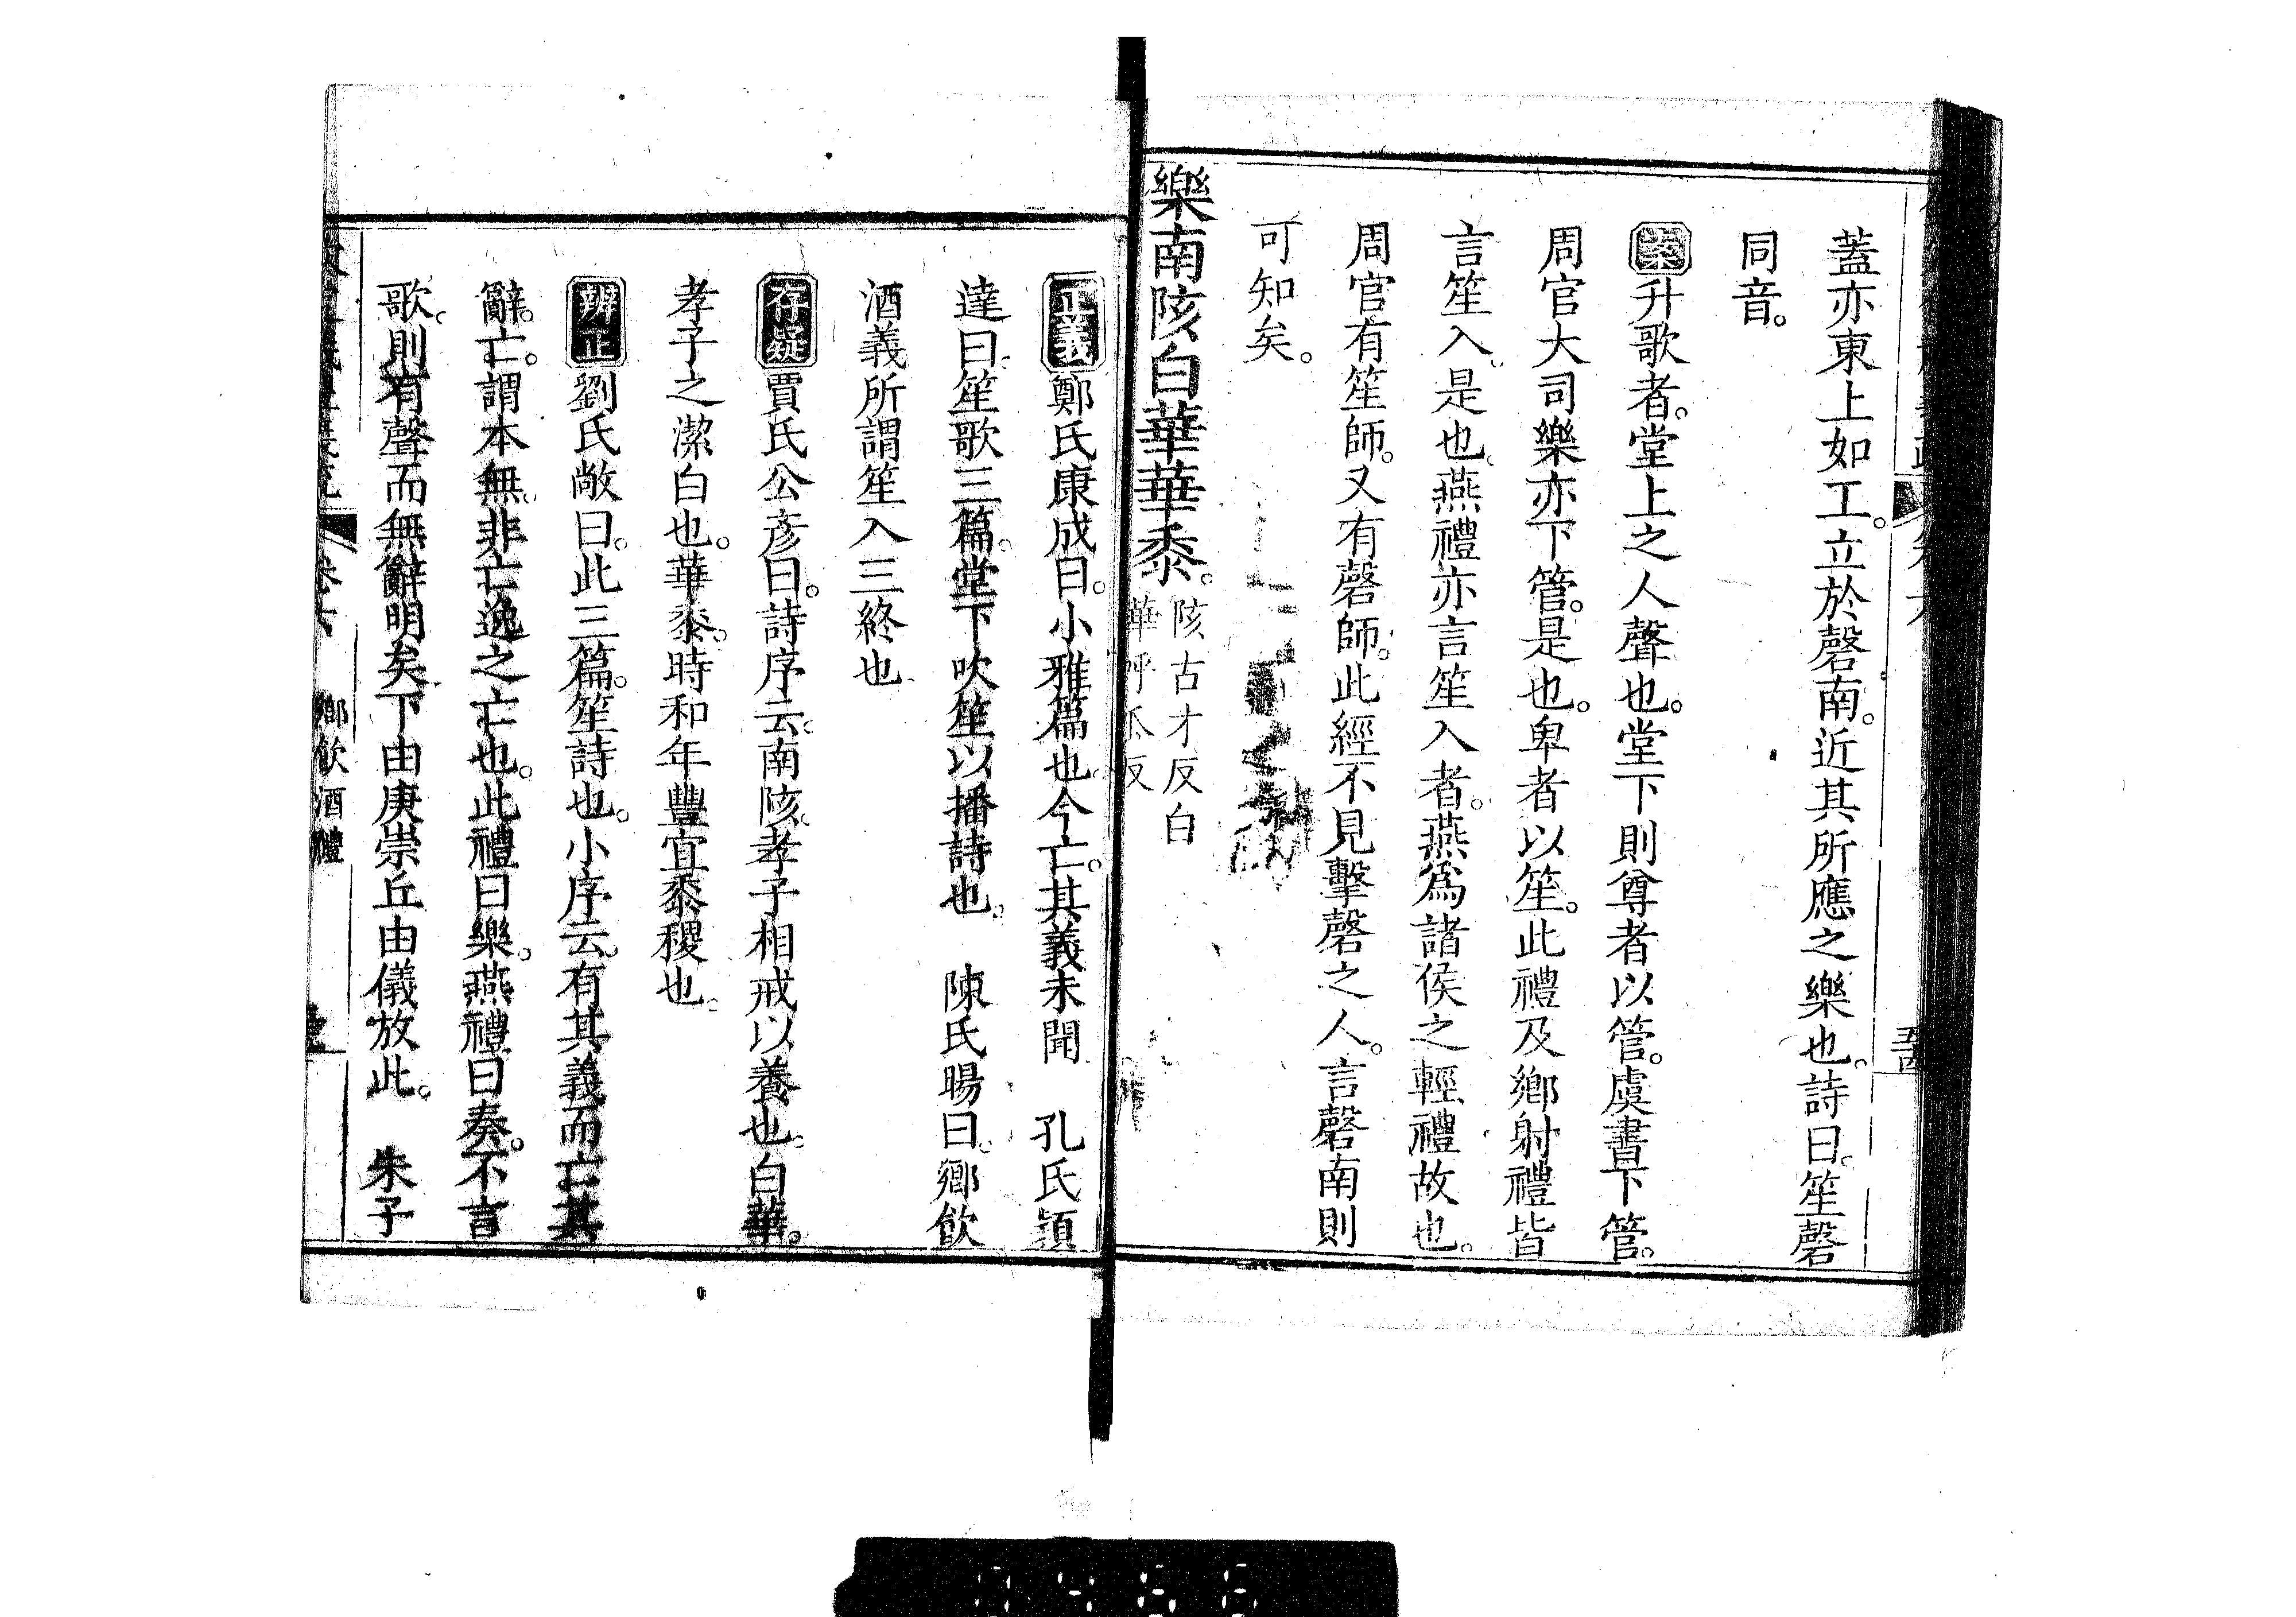 蓋亦東上如工。立於磬南。近其所應之樂也。詩曰。笙磬
同音。
案升歌者。堂上之人聲也。堂下則尊者以管。虞書下管。
周官大司樂亦下管。是也。卑者以笙。此禮及鄉射禮皆
言笙入。是也。燕禮亦言笙入者。燕爲諸侯之輕禮故也。
周官有笙師。又有磬師。此經不見擊磬之人。言磬南則
可知矣。
樂南陔白華華黍。陔古才反白
華呼瓜反
正義鄭氏康成曰。小雅篇也。今亡。其義未聞 孔氏穎
達曰。笙歌三篇。堂下吹笙以播詩也。 陳氏暘曰。鄉飲
酒義所謂笙入三終也
存疑賈氏公彥曰。詩序云。南陔。孝子相戒以養也。白華。
孝子之潔白也。華黍。時和年豐宜黍稷也。
辨正劉氏敞曰。此三篇。笙詩也。小序云。有其義而亡其
辭。亡。謂本無。非亡逸之亡也。此禮曰樂。燕禮曰奏。不言
歌。則有聲而無辭明矣。下由庚崇丘由儀放此。 朱子
鄉飲酒禮